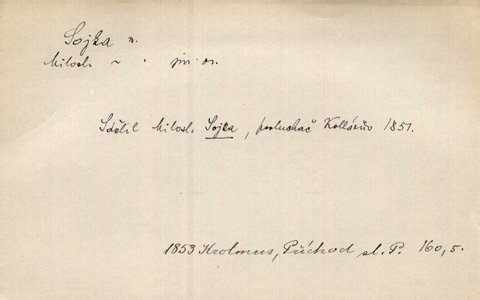 Sojka m.
Milosl. ~ " jm. os.
Sdělil Milosl. Sojka, posluchač Kollárův 1851.
1853 Krolmus, Příchod sl. P. 160, 5.